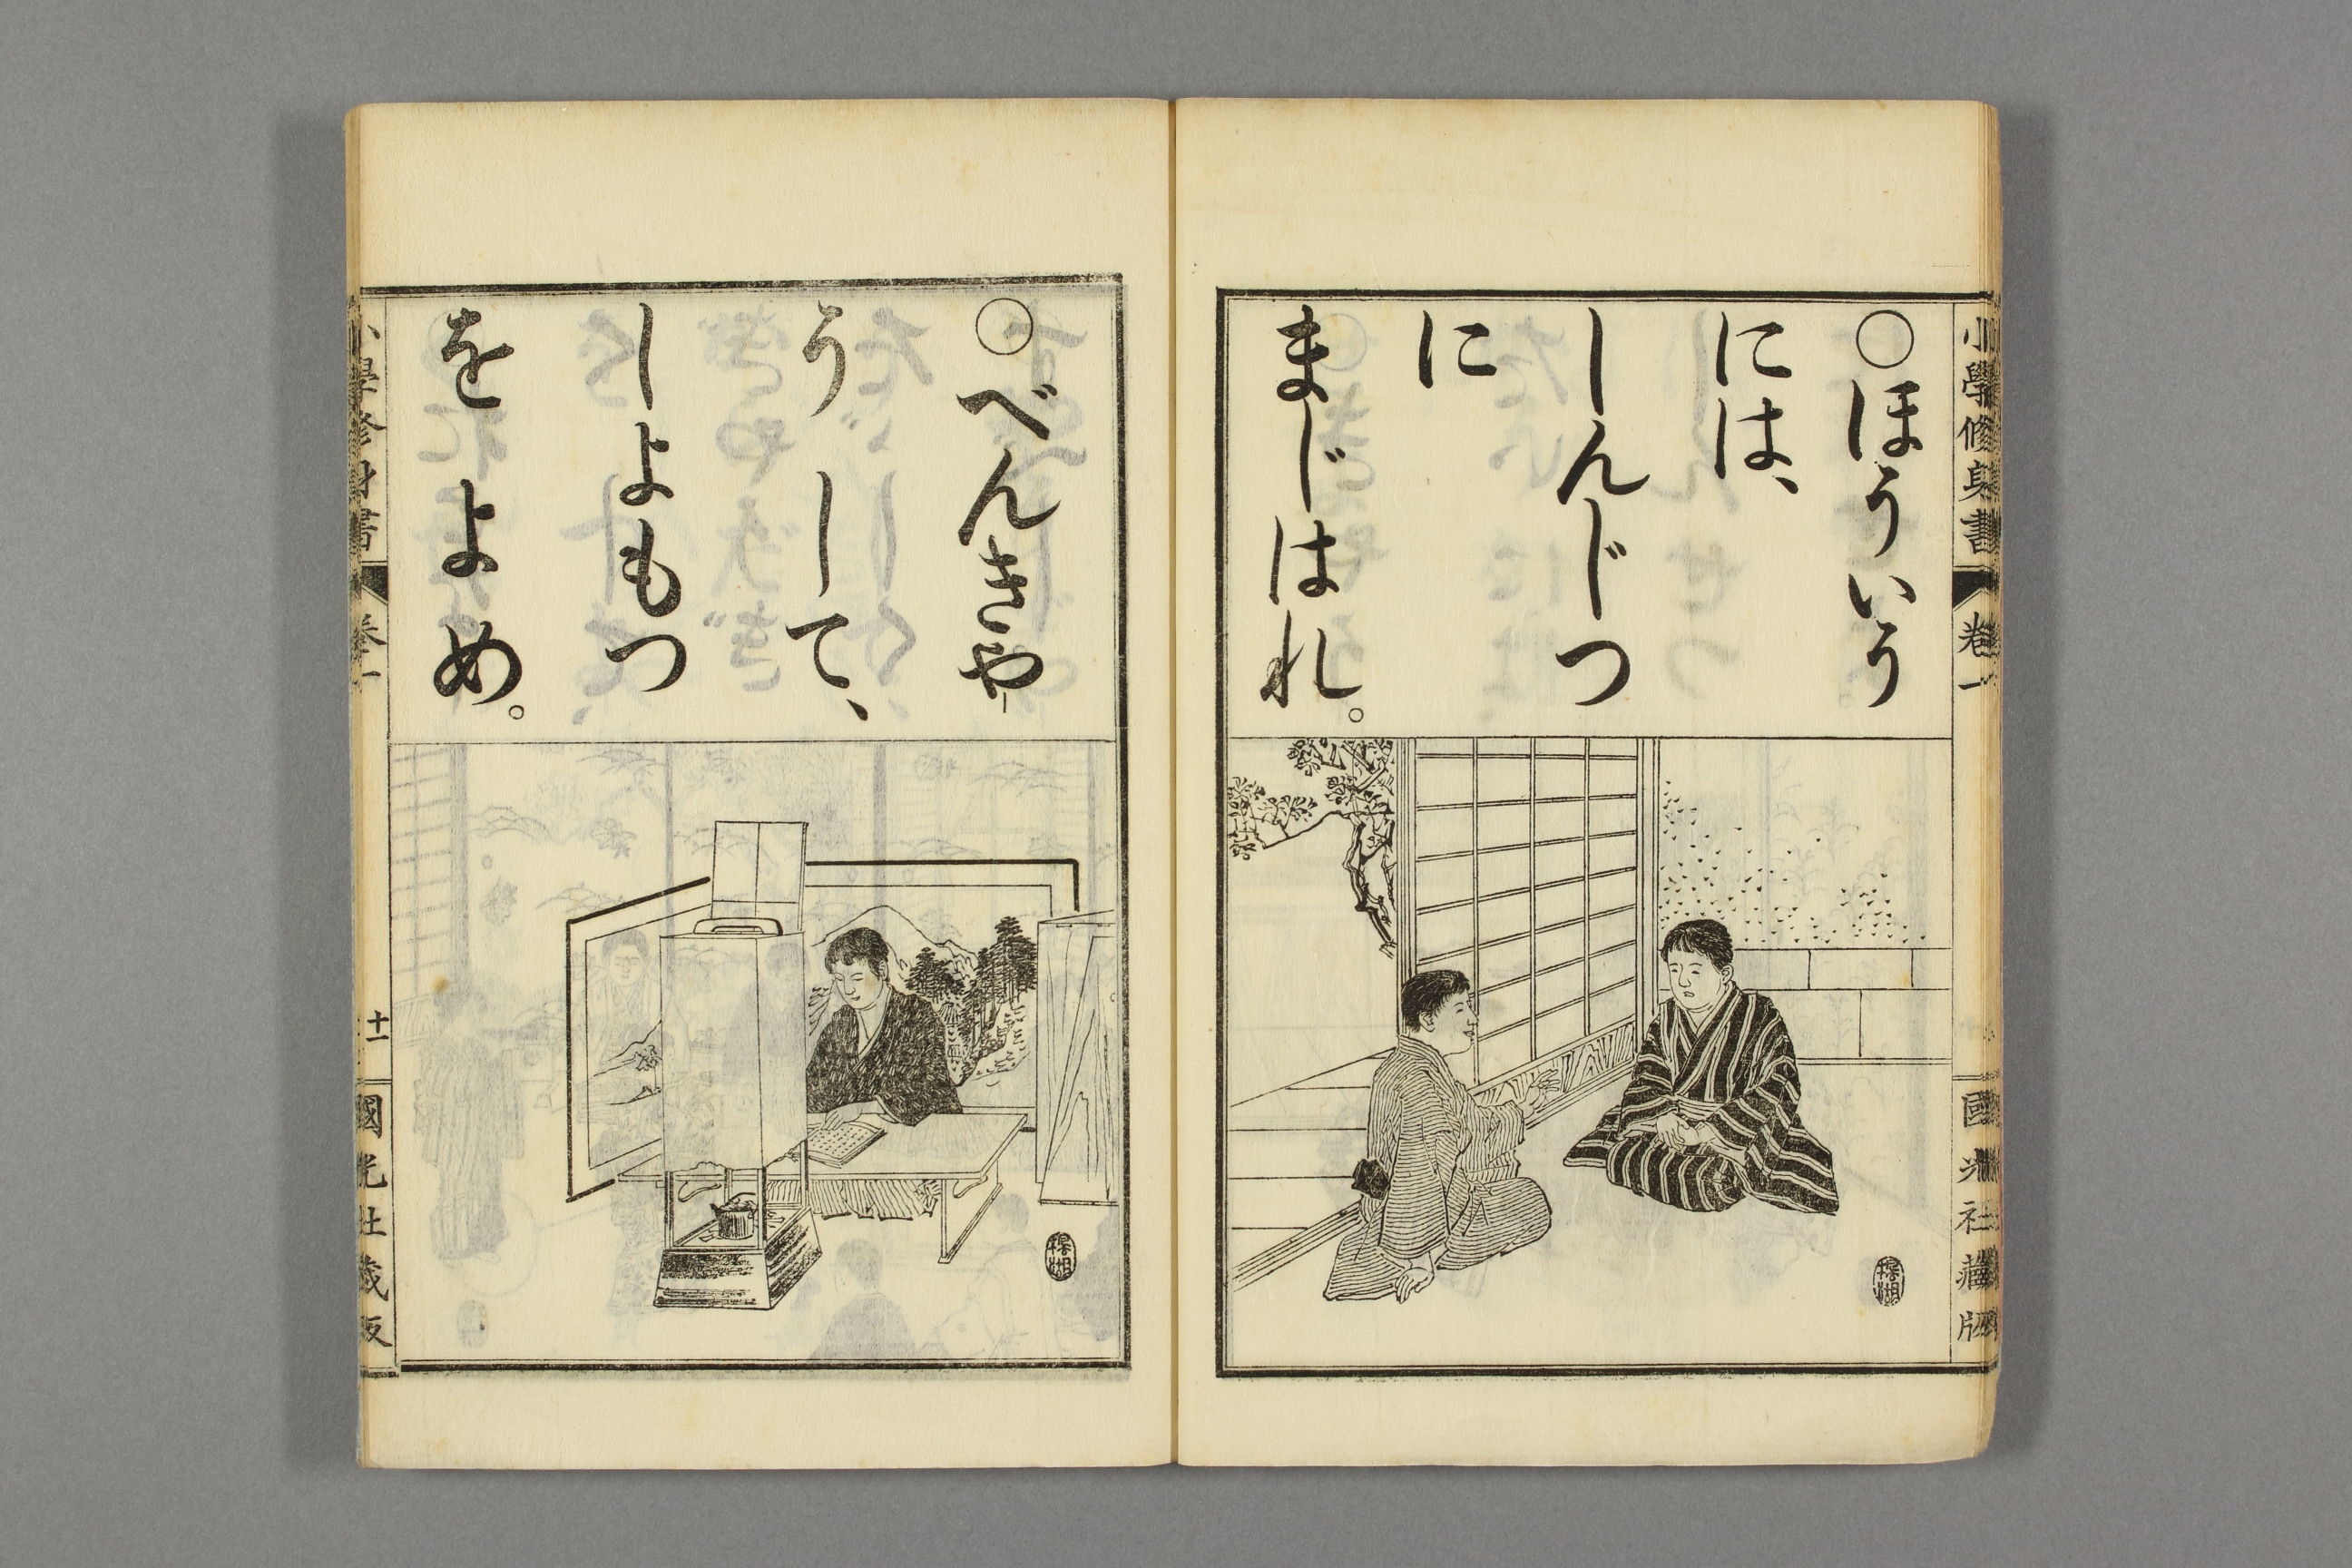 小學修身書 卷一 國光社藏版
○ほういう
には、
しんじつ
に
まじはれ。
○べんきや
うして、
しよもつ
をよめ。
小學修身書 卷一 十一 國光社藏版